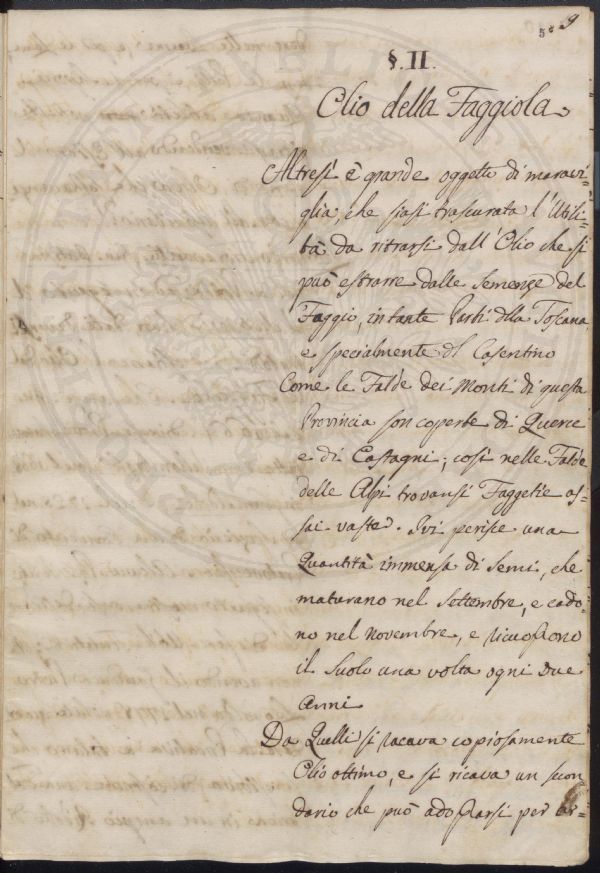 9
§. II.
Olio della Faggiola
Altresì è grande oggetto di maravi-
glia, che siasi trascurata l'Utili-
tà da ritrarsi dall'Olio che si
può estrarre dalle Semenze del
Faggio, in tante Parti della Toscana
e specialmente del Casentino
Come le Falde dei Monti di questa
Provincia son coperte di Querce
e di Castagni; così nelle Falde
delle Alpi trovansi Faggetie as-
sai vaste. Ivi perisce una
Quantità immensa di Semi, che
maturano nel Settembre, e cado-
no nel novembre, e ricuoprono
il Suolo una volta ogni due
anni
Da Quelli si ricava copiosamente
Olio ottimo, e si ricava un secon
dario che può adoprarsi per ar-